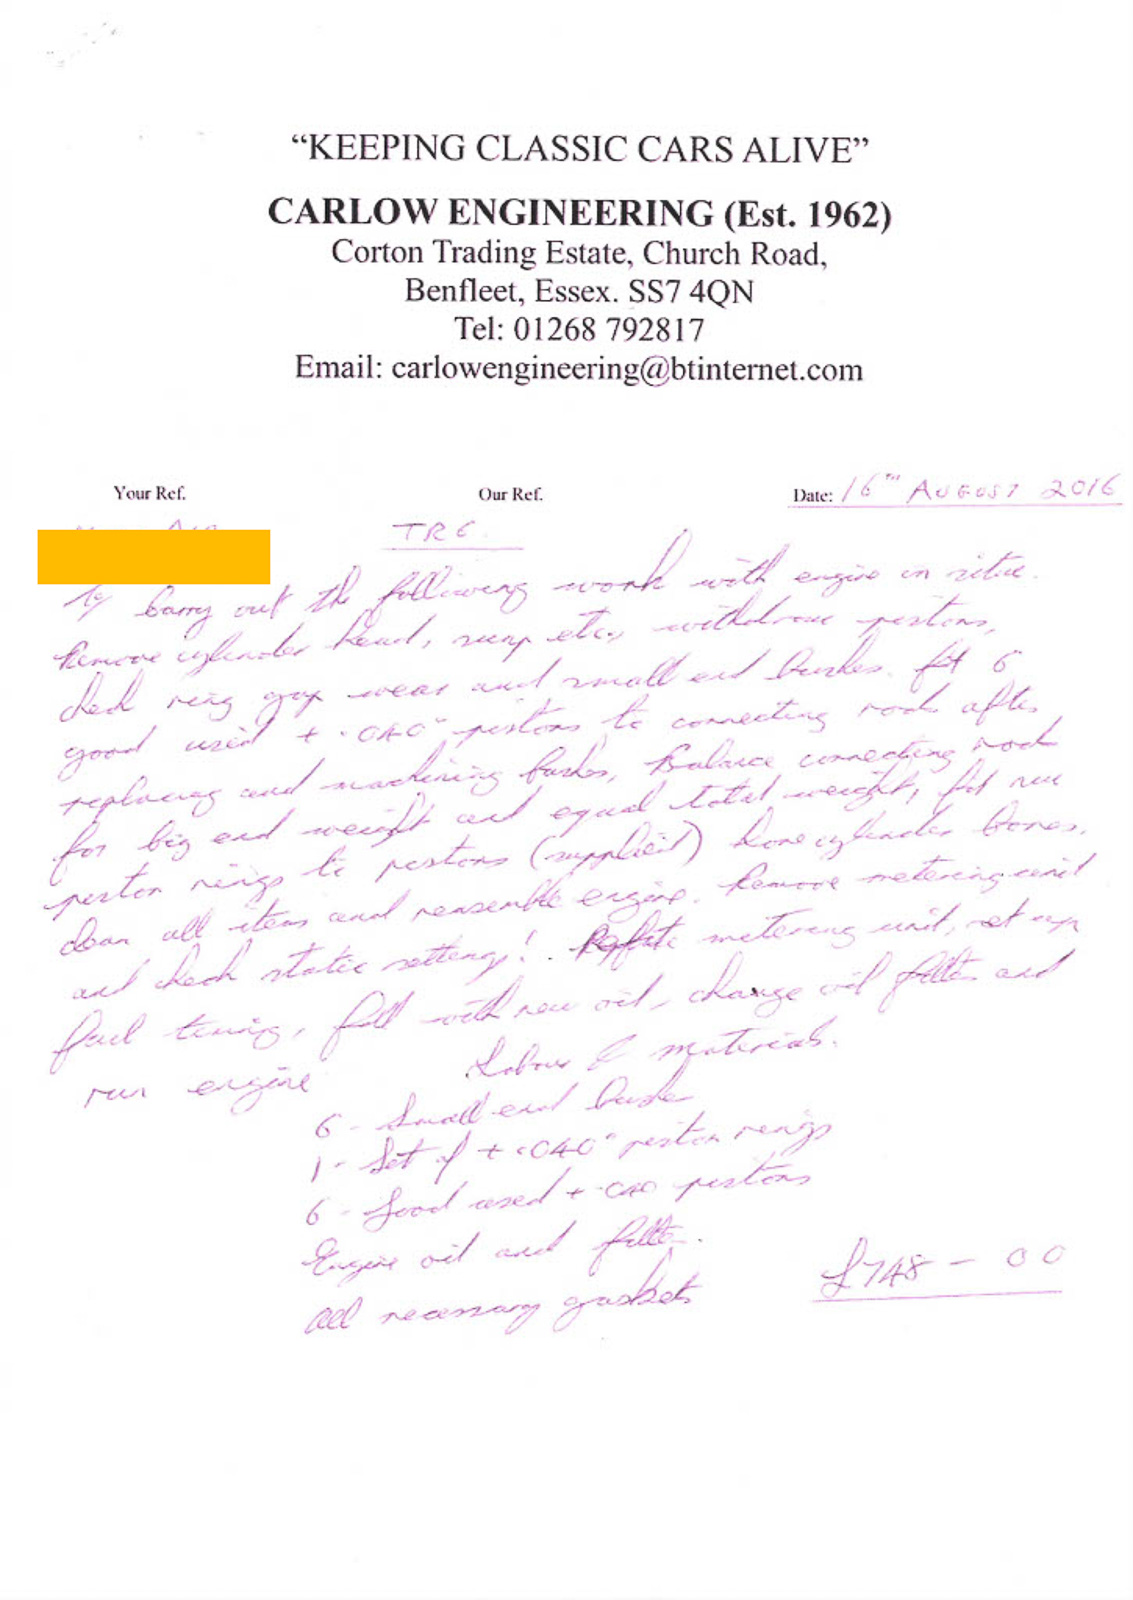 “KEEPING CLASSIC CARS ALIVE”
CARLOW ENGINEERING (Est. 1962)
Corton Trading Estate, Church Road,
Benfleet, Essex. SS7 4QN
Tel: 01268 792817
Email: carlowengineering@btinternet.com
Your Ref. Our Ref. Date: 16TH AUGUST 2016
TR6.
To carry out the following work with engine in situe.
Remove cylinder head, sump etc, withdraw pistons,
check ring gap wear and small end bushes. fit 6
good used + .040" pistons to connecting rods after
replacing and machining bushes, Balance connecting rods
for big end weight and equal total weight, fit new
piston rings to pistons (supplied) hone cylinder bores,
clean all items and reassemble engine. Remove metering unit
and check static settings! Refit metering unit, set up
fuel timing, fill with new oil, change oil filter and
run engine Labour & materials.
6 - Small end bushes
1 - Set of + .040" piston rings
6 - Good used + .040 pistons
Engine oil and filter.
All necessary gaskets £748 - 00